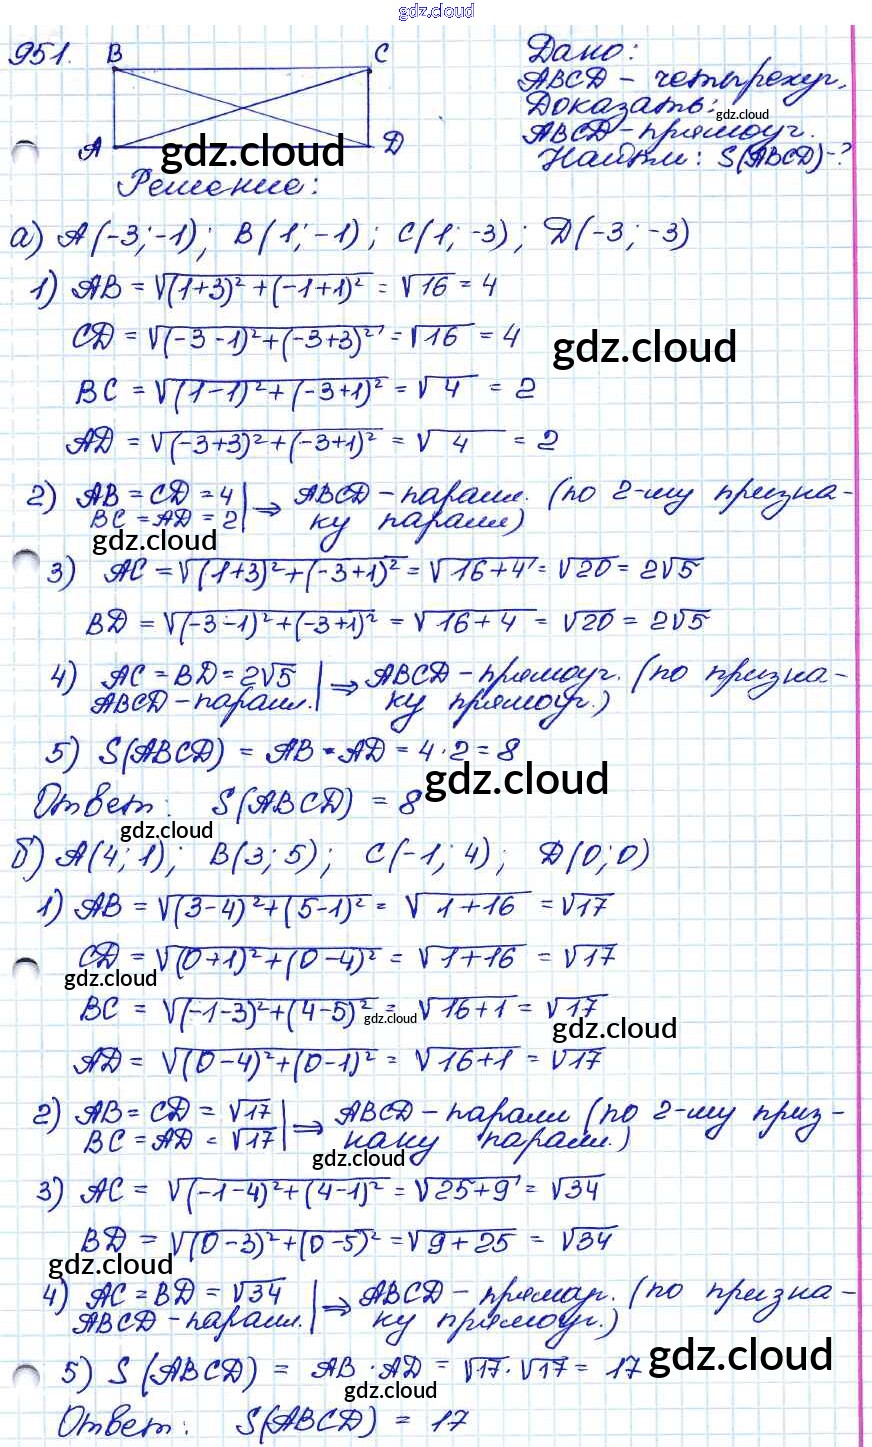 gdz.cloud
951. B C
A D
Дано:
ABCD - четырехуг.
Доказать:
gdz.cloud
ABCD - прямоуг.
Найти: S(ABCD)-?
gdz.cloud
Решение:
а) A(-3;-1); B(1;-1); C(1;-3); D(-3;-3)
1) AB = √(1+3)²+(-1+1)² = √16 = 4
CD = √(-3-1)²+(-3+3)² = √16 = 4
gdz.cloud
BC = √(1-1)²+(-3+1)² = √4 = 2
AD = √(-3+3)²+(-3+1)² = √4 = 2
2) AB = CD = 4 | ⇒ ABCD - паралл. (по 2-му призна-
BC = AD = 2 | ку паралл)
gdz.cloud
3) AC = √(1+3)²+(-3+1)² = √16+4 = √20 = 2√5
BD = √(-3-1)²+(-3+1)² = √16+4 = √20 = 2√5
4) AC = BD = 2√5 | ⇒ ABCD - прямоуг. (по призна-
ABCD - паралл. | ку прямоуг.)
5) S(ABCD) = AB · AD = 4·2 = 8
gdz.cloud
Ответ: S(ABCD) = 8
gdz.cloud
б) A(4;1); B(3;5); C(-1;4); D(0;0)
1) AB = √(3-4)²+(5-1)² = √1+16 = √17
CD = √(0+1)²+(0-4)² = √1+16 = √17
gdz.cloud
BC = √(-1-3)²+(4-5)² = √16+1 = √17
gdz.cloud
gdz.cloud
AD = √(0-4)²+(0-1)² = √16+1 = √17
2) AB = CD = √17 | ⇒ ABCD - паралл (по 2-му приз-
BC = AD = √17 | наку паралл.)
gdz.cloud
3) AC = √(-1-4)²+(4-1)² = √25+9 = √34
BD = √(0-3)²+(0-5)² = √9+25 = √34
gdz.cloud
4) AC = BD = √34 | ⇒ ABCD - прямоуг. (по призна-
ABCD - паралл. | ку прямоуг.)
5) S(ABCD) = AB · AD = √17·√17 = 17
gdz.cloud
gdz.cloud
Ответ: S(ABCD) = 17